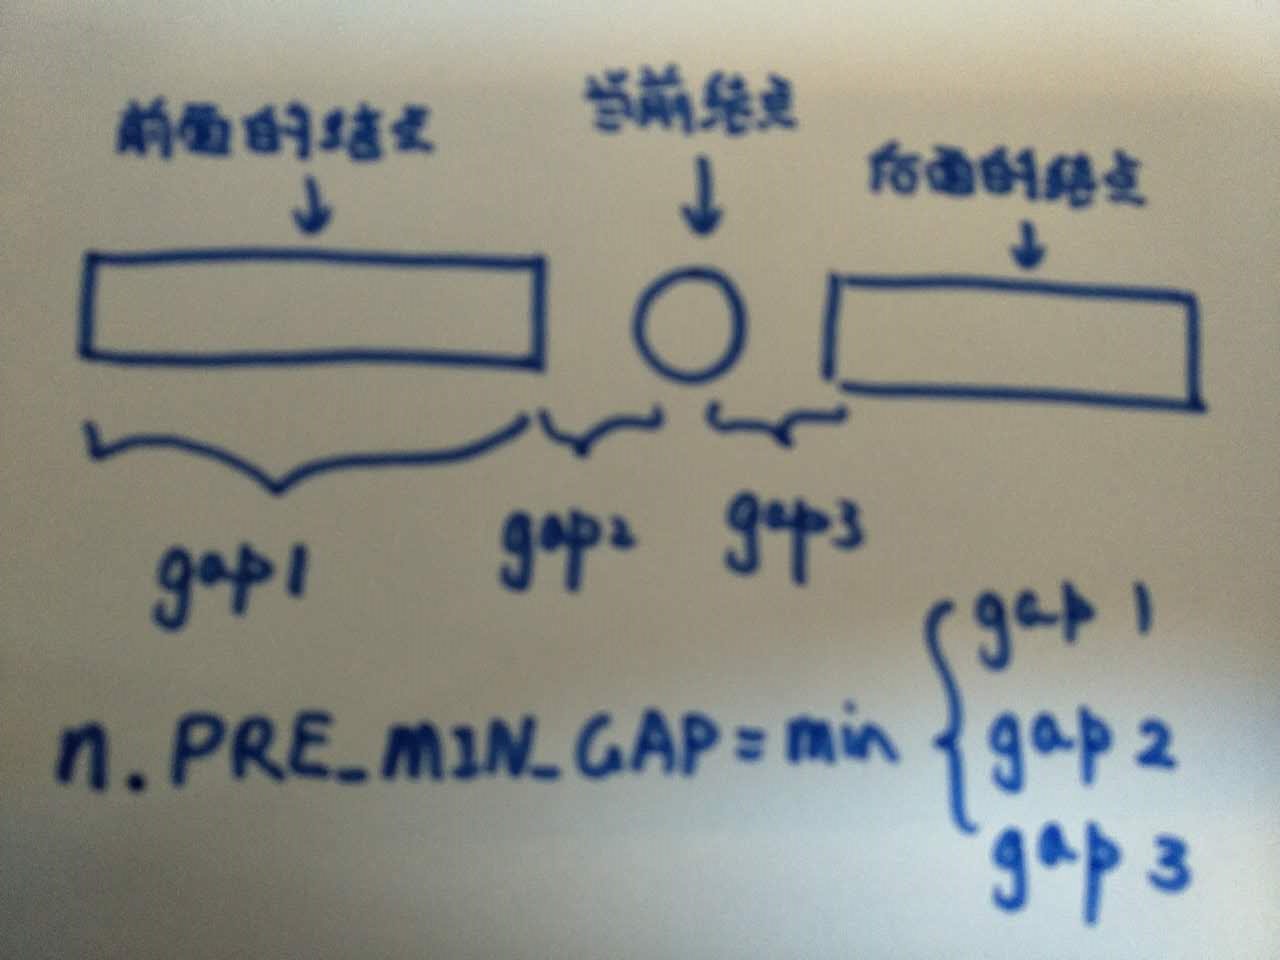 前面的结点
当前结点
后面的结点
gap1
gap2
gap3
n.PRE_MIN_GAP=min
gap 1
gap 2
gap 3